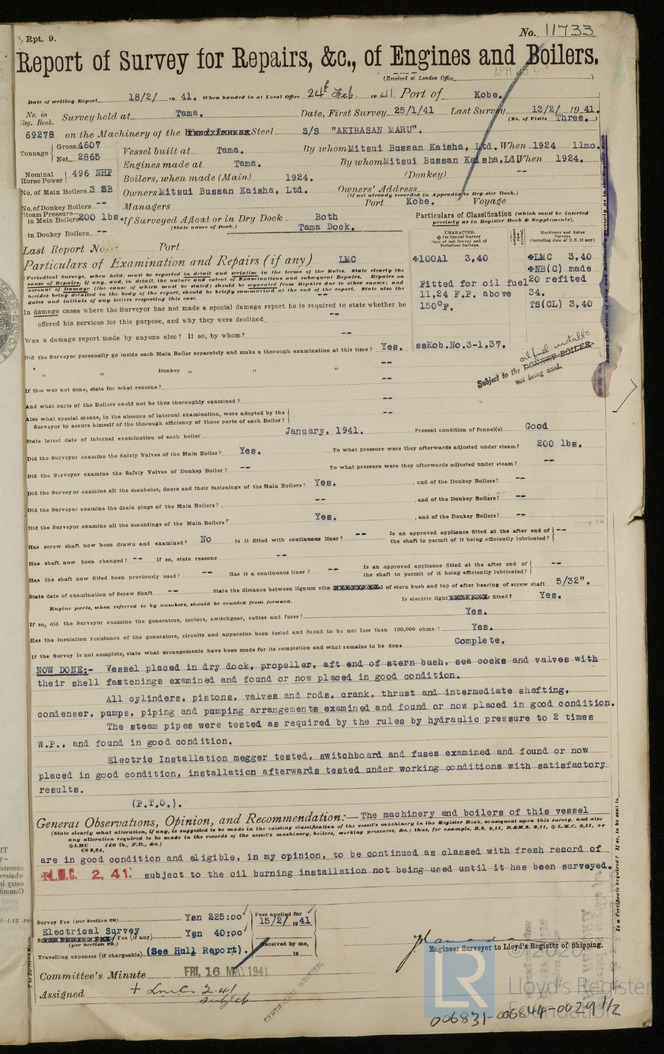 Rpt. 9.
No. 11733
Report of Survey for Repairs, &c., of Engines and Boilers.
(Received at London Office
Date of writing Report 18/2/ 19 41. When handed in at Local Office 24th Feb 19 41 Port of Kobe.
No. in Reg. Book. Survey held at Tama. Date, First Survey 25/1/41 Last Survey 13/2/ 19 41.
(No. of Visits Three.)
69278 on the Machinery of the Steel S/S "AKIBASAN MARU".
Tonnage Gross 4607 Net 2865
Vessel built at Tama. By whom Mitsui Bussan Kaisha, Ltd. When 1924 11mo.
Engines made at Tama. By whom Mitsui Bussan Kaisha, Ltd When 1924.
Nominal Horse Power 496 NHP
Boilers, when made (Main) 1924. (Donkey) --
No. of Main Boilers 3 SB Owners Mitsui Bussan Kaisha, Ltd. Owners' Address
(If not already recorded in Appendix to Register Book.)
No. of Donkey Boilers -- Managers Port Kobe. Voyage
Steam Pressure in Main Boilers 200 lbs. If Surveyed Afloat or in Dry Dock Both
(State name of Dock.) Tama Dock.
in Donkey Boilers --
Particulars of Classification (which must be inserted precisely as in Register Book & Supplements).
Last Report No. Port
Particulars of Examination and Repairs (if any) LMC
+100A1 3,40
+LMC 3,40
+NB(C) made 20 refitted 34.
TS(CL) 3,40
Fitted for oil fuel
11,24 F.P. above
150°F.
ssKob.No.3-1,37.
In damage cases where the Surveyor has not made a special damage report he is required to state whether he
offered his services for this purpose, and why they were declined --
Was a damage report made by anyone else? If so, by whom? --
Did the Surveyor personally go inside each Main Boiler separately and make a thorough examination at this time? Yes.
" " Donkey " " " --
Subject to the DONKEY BOILER oil fuel installn
not being used.
If this was not done, state for what reasons? --
And what parts of the Boilers could not be thus thoroughly examined? --
Also what special means, in the absence of internal examination, were adopted by the
Surveyor to assure himself of the thorough efficiency of those parts of each Boiler? --
State latest date of internal examination of each boiler January, 1941. Present condition of funnel(s) Good
Did the Surveyor examine the Safety Valves of the Main Boiler? Yes. To what pressure were they afterwards adjusted under steam? 200 lbs.
Did the Surveyor examine the Safety Valves of Donkey Boiler? -- To what pressure were they afterwards adjusted under steam? --
Did the Surveyor examine all the manholes, doors and their fastenings of the Main Boilers? Yes. , and of the Donkey Boilers? --
Did the Surveyor examine the drain plugs of the Main Boilers? -- , and of the Donkey Boilers? --
Did the Surveyor examine all the mountings of the Main Boilers? Yes. , and of the Donkey Boilers? --
Has screw shaft now been drawn and examined? No Is it fitted with continuous liner? -- Is an approved appliance fitted at the after end of the shaft to permit of it being efficiently lubricated? --
Has shaft now been changed? -- If so, state reasons --
Has the shaft now fitted been previously used? -- Has it a continuous liner? -- Is an approved appliance fitted at the after end of the shaft to permit of it being efficiently lubricated? --
State date of examination of Screw Shaft -- State the distance between lignum vitæ of stern bush and top of after bearing of screw shaft 5/32".
Engine parts, when referred to by numbers, should be counted from forward. Is electric light fitted? Yes.
If so, did the Surveyor examine the generators, motors, switchgear, cables and fuses? Yes.
Has the insulation resistance of the generators, circuits and apparatus been tested and found to be not less than 100,000 ohms? Yes.
If the Survey is not complete, state what arrangements have been made for its completion and what remains to be done Complete.
NOW DONE:- Vessel placed in dry dock, propeller, aft end of stern bush, sea cocks and valves with
their shell fastenings examined and found or now placed in good condition.
All cylinders, pistons, valves and rods, crank, thrust and intermediate shafting,
condenser, pumps, piping and pumping arrangements examined and found or now placed in good condition.
The steam pipes were tested as required by the rules by hydraulic pressure to 2 times
W.P., and found in good condition.
Electric Installation megger tested, switchboard and fuses examined and found or now
placed in good condition, installation afterwards tested under working conditions with satisfactory
results.
(P.T.O.).
General Observations, Opinion, and Recommendation:— The machinery and boilers of this vessel
are in good condition and eligible, in my opinion, to be continued as classed with fresh record of
+L.M.C. 2.41. subject to the oil burning installation not being used until it has been surveyed.
Survey Fee (per Section 29) Yen 225:00
Fees applied for 15/2/ 19 41
Electrical Survey Fee (if any) Yen 40:00
(per Section 29)
Received by me, 19
Travelling expenses (if chargeable) (See Hull Report).
Engineer Surveyor to Lloyd's Register of Shipping.
Committee's Minute FRI. 16 MAY 1941
Assigned + LMC 2.41
subject
CERTIFICATE WRITTEN.
© 2020
LR
Lloyd's Register
Foundation
006831-006844-0029 1/2